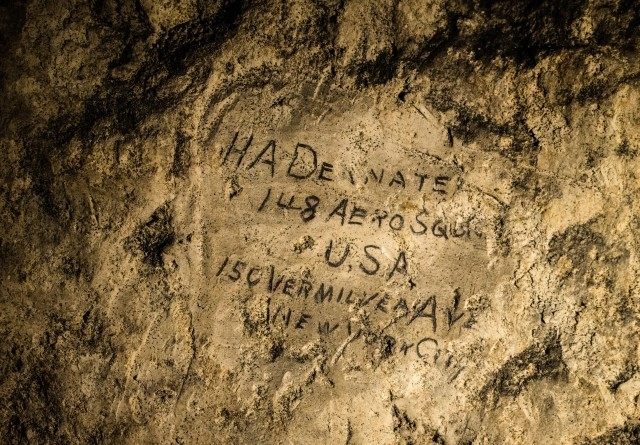 HA DeANATE
148 AERO SQU
USA
150 VERMILYEA AVE
NEW YORK CITY